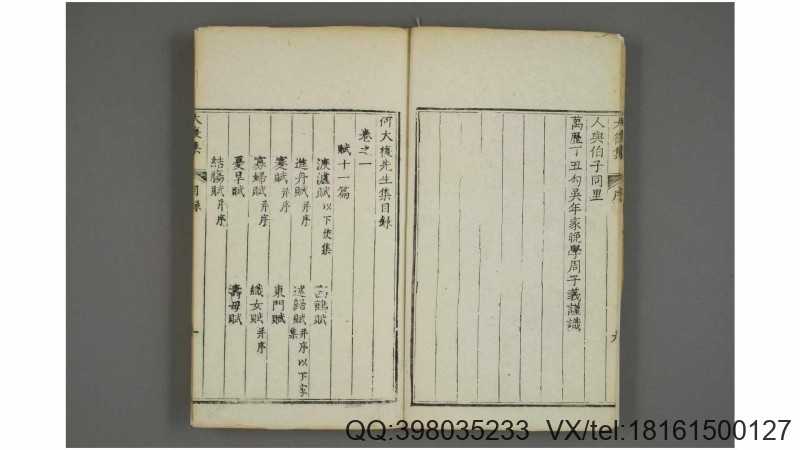 人與伯子同里
萬歷丁丑勾吳年家晚學周子義謹識
何大復先生集目錄
卷之一
賦十一篇
渡瀘賦以下使集
進舟賦并序
述歸賦并序以下家集
蹇賦并序
東門賦
寡婦賦并序
織女賦并序
憂旱賦
壽母賦
結腸賦并序
QQ:398035233 VX/tel:18161500127